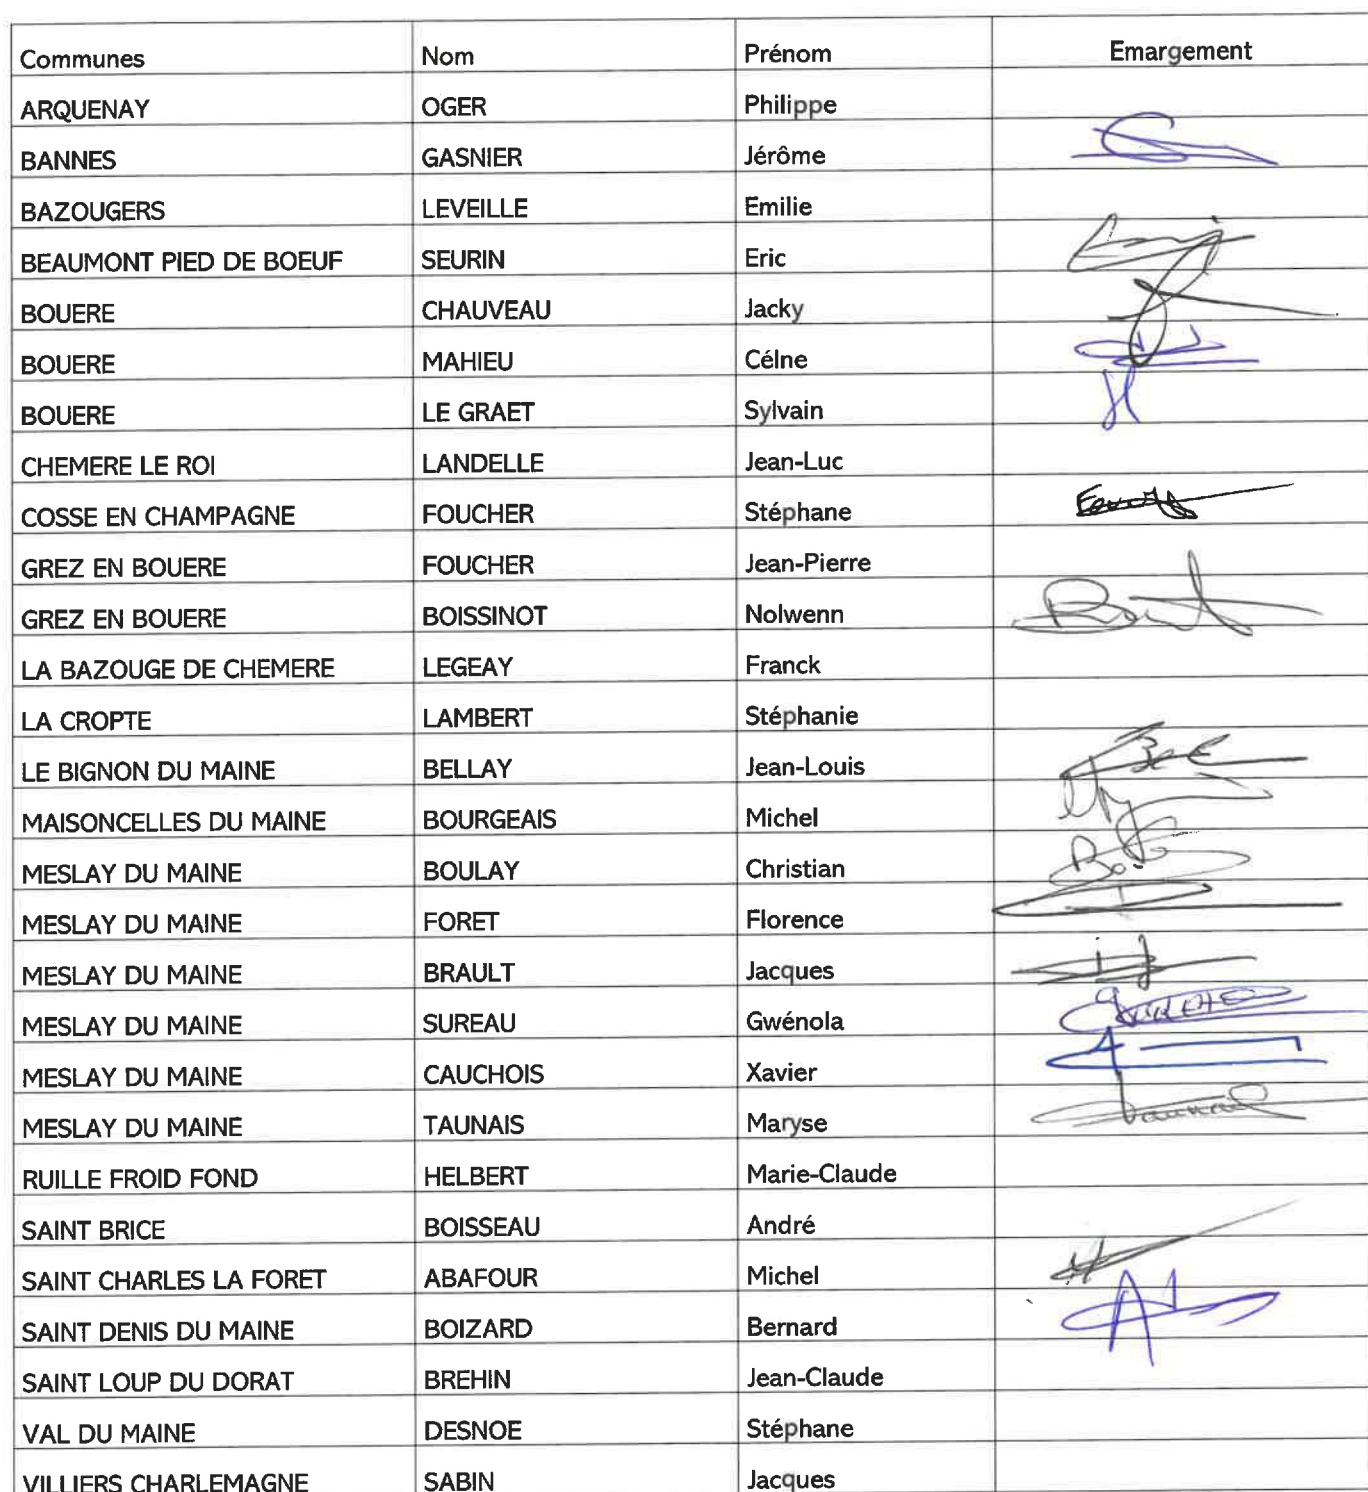 Communes Nom Prénom Emargement
ARQUENAY OGER Philippe
BANNES GASNIER Jérôme
BAZOUGERS LEVEILLE Emilie
BEAUMONT PIED DE BOEUF SEURIN Eric
BOUERE CHAUVEAU Jacky
BOUERE MAHIEU Célne
BOUERE LE GRAET Sylvain
CHEMERE LE ROI LANDELLE Jean-Luc
COSSE EN CHAMPAGNE FOUCHER Stéphane
GREZ EN BOUERE FOUCHER Jean-Pierre
GREZ EN BOUERE BOISSINOT Nolwenn
LA BAZOUGE DE CHEMERE LEGEAY Franck
LA CROPTE LAMBERT Stéphanie
LE BIGNON DU MAINE BELLAY Jean-Louis
MAISONCELLES DU MAINE BOURGEAIS Michel
MESLAY DU MAINE BOULAY Christian
MESLAY DU MAINE FORET Florence
MESLAY DU MAINE BRAULT Jacques
MESLAY DU MAINE SUREAU Gwénola
MESLAY DU MAINE CAUCHOIS Xavier
MESLAY DU MAINE TAUNAIS Maryse
RUILLE FROID FOND HELBERT Marie-Claude
SAINT BRICE BOISSEAU André
SAINT CHARLES LA FORET ABAFOUR Michel
SAINT DENIS DU MAINE BOIZARD Bernard
SAINT LOUP DU DORAT BREHIN Jean-Claude
VAL DU MAINE DESNOE Stéphane
VILLIERS CHARLEMAGNE SABIN Jacques